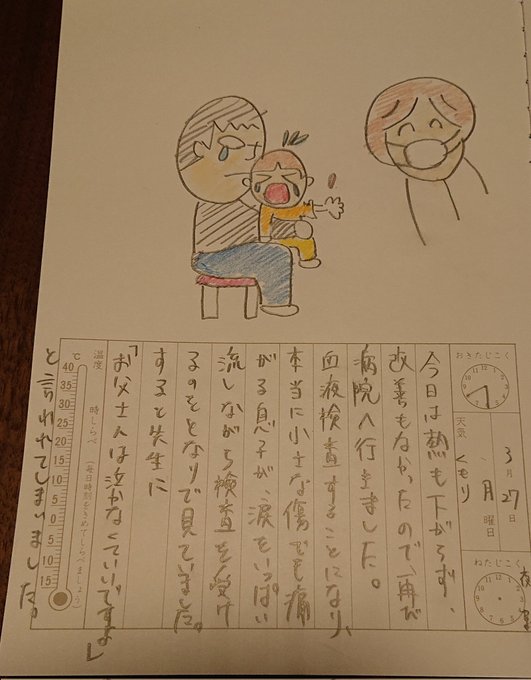 おきたじこく
天気
くもり
3月27日
月曜日
ねたじこく
今日は熱も下がらず、
改善もなかったので、再び
病院へ行きました。
血液検査することになり、
本当に小さな傷でも痛
がる息子が、涙をいっぱい
流しながら検査を受け
るのをとなりで見ていました。
すると先生に
「お父さんは泣かなくていいですよ」
と言われてしまいました。
温度
時しらべ
(毎日時刻をきめてしらべましょう)
℃
40
35
30
25
20
15
10
5
0
5
10
15